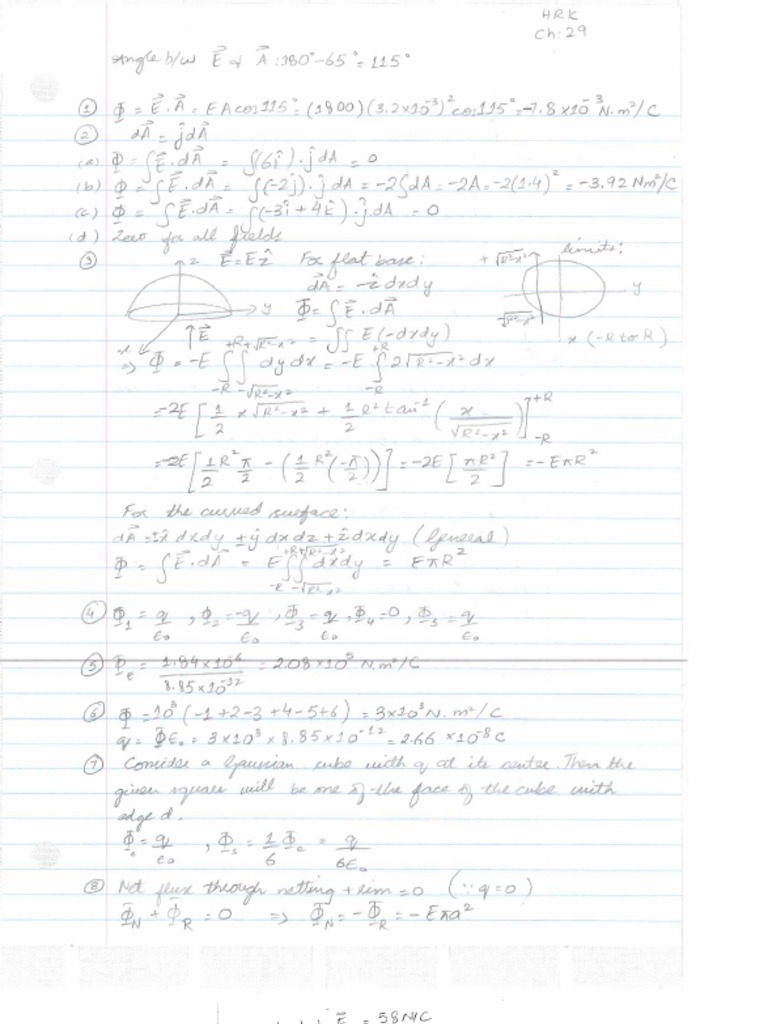 HRK
Ch: 29
Angle b/w E⃗ & A⃗ : 180° - 65° = 115°
① Φ = E⃗.A⃗ = EA cos 115° = (1800)(3.2×10⁻³)² cos 115° = -7.8×10⁻³ N.m²/C
② dA⃗ = ĵdA
(a) Φ = ∫E⃗.dA⃗ = ∫(6î).ĵdA = 0
(b) Φ = ∫E⃗.dA⃗ = ∫(-2ĵ).ĵdA = -2∫dA = -2A = -2(1.4)² = -3.92 Nm²/C
(c) Φ = ∫E⃗.dA⃗ = ∫(-3î + 4k̂).ĵdA = 0
(d) Zero for all fields
③ z E⃗ = Eẑ For flat base: +√R²-x² limits:
dA⃗ = -ẑ dxdy
y Φ = ∫E⃗.dA⃗ y
x ↑E⃗ = ∫∫ E(-dxdy) -√R²-x² x (-R to R)
⇒ Φ = -E ∫_{-R}^{+R} ∫_{-√R²-x²}^{+√R²-x²} dy dx = -E ∫_{-R}^{+R} 2√R²-x² dx
= -2E [ 1/2 x√R²-x² + 1/2 R² tan⁻¹ ( x/√R²-x² ) ]_{-R}^{+R}
= -2E [ 1/2 R² π/2 - ( 1/2 R² (-π/2) ) ] = -2E [ πR²/2 ] = -EπR²
For the curved surface:
dA⃗ = ±x̂ dxdy ± ŷ dxdz + ẑ dxdy (General)
Φ = ∫E⃗.dA⃗ = E ∫_{-R}^{+R} ∫_{-√R²-x²}^{+√R²-x²} dxdy = EπR²
④ Φ₁ = q/ε₀ , Φ₂ = -q/ε₀ , Φ₃ = q/ε₀ , Φ₄ = 0, Φ₅ = q/ε₀
⑤ Φ_t = 1.84×10⁻⁶/8.85×10⁻¹² = 2.08×10⁵ N.m²/C
⑥ Φ = 10³(-1+2-3+4-5+6) = 3×10³ N.m²/C
q = Φε₀ = 3×10³ × 8.85×10⁻¹² = 2.66 ×10⁻⁸ C
⑦ Consider a Gaussian cube with q at its center. Then the
given square will be one of the face of the cube with
edge d.
Φ_c = q/ε₀ , Φ_s = 1/6 Φ_c = q/6ε₀
⑧ Net flux through netting + rim = 0 (∵ q = 0)
Φ_N + Φ_R = 0 ⇒ Φ_N = -Φ_R = -Eπa²
E⃗ = 58 N/C